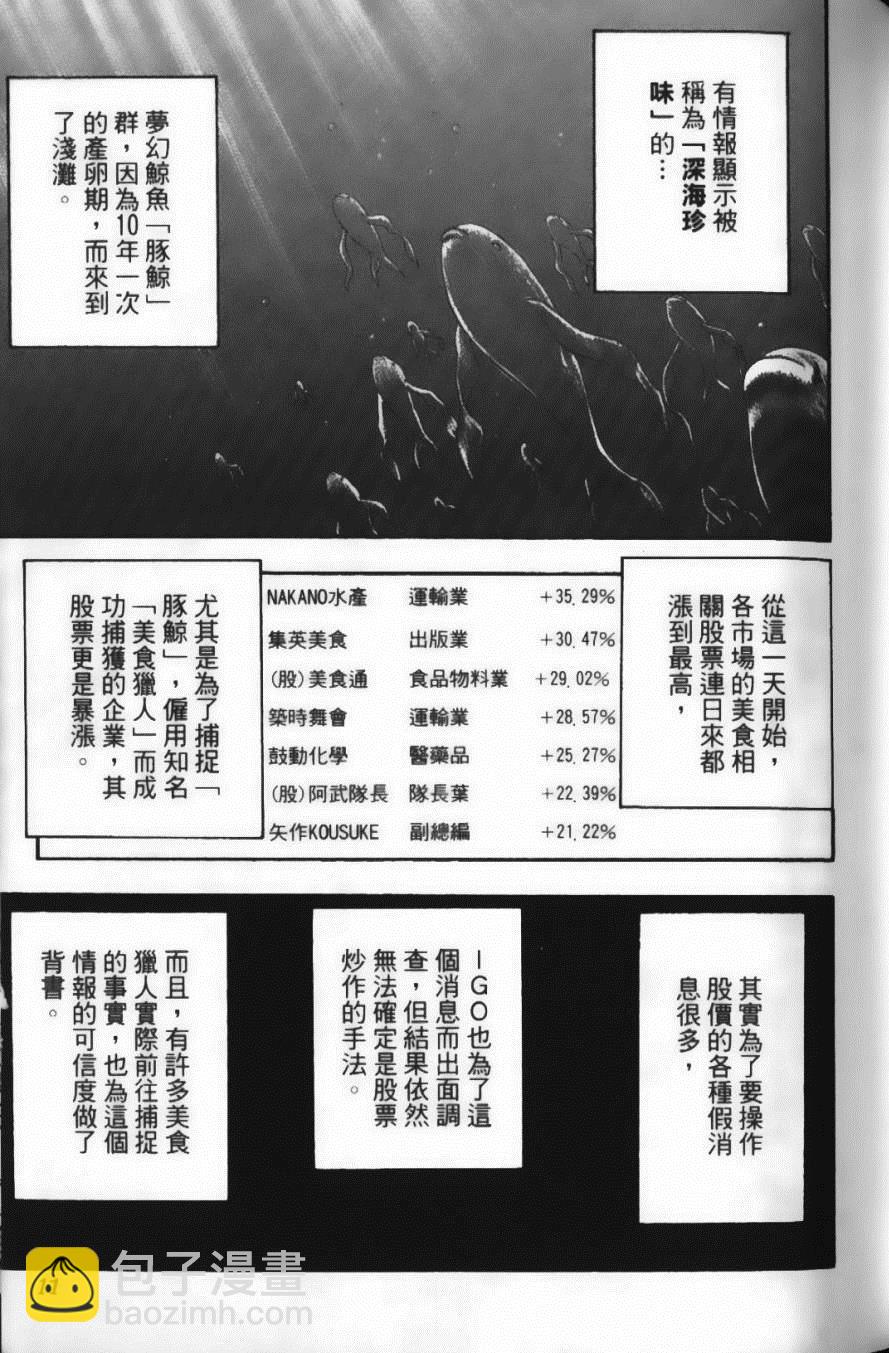 有情報顯示被
稱為「深海珍
味」的…
夢幻鯨魚「豚鯨」
群，因為10年一次
的產卵期，而來到
了淺灘。
從這一天開始，
各市場的美食相
關股票連日來都
漲到最高，
NAKANO水產 運輸業 +35.29%
集英美食 出版業 +30.47%
(股)美食通 食品物料業 +29.02%
築時舞會 運輸業 +28.57%
鼓動化學 醫藥品 +25.27%
(股)阿武隊長 隊長葉 +22.39%
矢作KOUSUKE 副總編 +21.22%
尤其是為了捕捉「
豚鯨」，僱用知名
「美食獵人」而成
功捕獲的企業，其
股票更是暴漲。
其實為了要操作
股價的各種假消
息很多，
IGO也為了這
個消息而出面調
查，但結果依然
無法確定是股票
炒作的手法。
而且，有許多美食
獵人實際前往捕捉
的事實，也為這個
情報的可信度做了
背書。
11
包子漫畫
baozimh.com